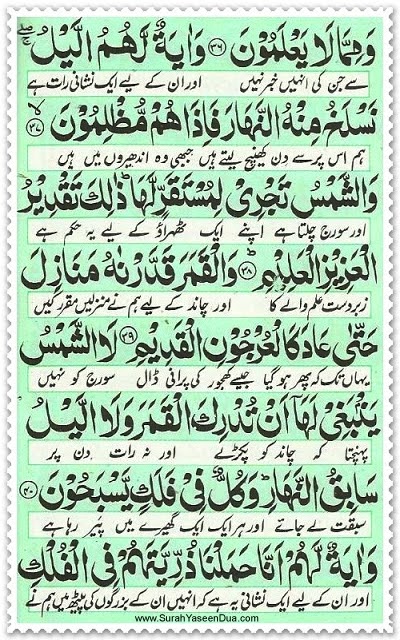 وَمِمَّا لَا يَعْلَمُوْنَ ﴿۳۶﴾ وَاٰيَةٌ لَّهُمُ الَّيْلُ
سے جن کی انہیں خبر نہیں اور ان کے لیے ایک نشانی رات ہے
نَسْلَخُ مِنْهُ النَّهَارَ فَاِذَا هُمْ مُّظْلِمُوْنَ ﴿۳۷﴾
ہم اس پر سے دن کھینچ لیتے ہیں جبھی وہ اندھیروں میں ہیں
وَالشَّمْسُ تَجْرِيْ لِمُسْتَقَرٍّ لَّهَا ذٰلِكَ تَقْدِيْرُ
اور سورج چلتا ہے اپنے ایک ٹھہراؤ کے لیے یہ حکم ہے
الْعَزِيْزِ الْعَلِيْمِ ﴿۳۸﴾ وَالْقَمَرَ قَدَّرْنٰهُ مَنَازِلَ
زبردست علم والے کا اور چاند کے لیے ہم نے منزلیں مقرر کیں
حَتّٰى عَادَ كَالْعُرْجُوْنِ الْقَدِيْمِ ﴿۳۹﴾ لَا الشَّمْسُ
یہاں تک کہ پھر ہو گیا جیسے کھجور کی پرانی ڈال سورج کو نہیں
يَنْۢبَغِيْ لَهَاۤ اَنْ تُدْرِكَ الْقَمَرَ وَلَا الَّيْلُ
پہنچتا کہ چاند کو پکڑلے اور نہ رات دن پر
سَابِقُ النَّهَارِ وَكُلٌّ فِيْ فَلَكٍ يَّسْبَحُوْنَ ﴿۴۰﴾
سبقت لے جائے اور ہر ایک ایک گھیرے میں پیر رہا ہے
وَاٰيَةٌ لَّهُمْ اَنَّا حَمَلْنَا ذُرِّيَّتَهُمْ فِي الْفُلْكِ
اور ان کے لیے ایک نشانی یہ ہے کہ انہیں ان کے بزرگوں کی پیٹھ میں ہم نے
www.SurahYaseenDua.com